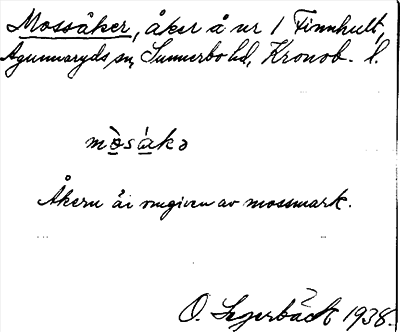 Mossåker, åker å nr 1 Finnhult,
Agunnaryds sn, Sunnerbo hd, Kronob. l.
mò̱sá̱kə
Åkern är omgiven av mossmark.
O. Segerbäck 1938.